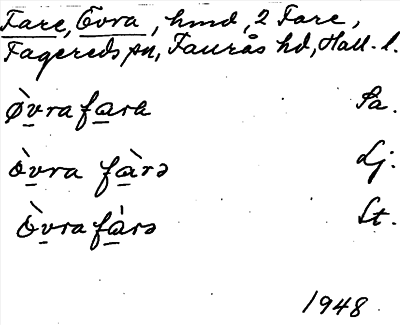 Fare, Övra, hmd, 2 Fare,
Fagereds sn, Faurås hd, Hall. l.
ø̀vrafara Sa.
ø̀vra fàrə Lj.
ø̀vrafárə St.
1948